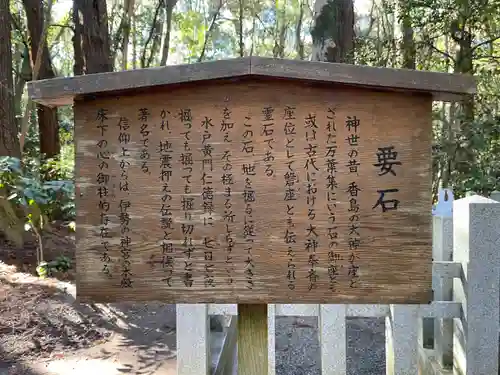 要石
神世の昔 香島の大神が座と
された万葉集にいう石の御座とも
或は古代における大神奉斎の
座位として磐座とも伝えられる
霊石である。
この石 地を掘るに従って大きさ
を加え その極まる所しらずという
水戸黄門仁徳録に 七日七夜
掘っても掘っても掘り切れずと書
かれ 地震押えの伝説と相俟って
著名である。
信仰上からは 伊勢の神宮の本殿
床下の心の御柱的存在である。